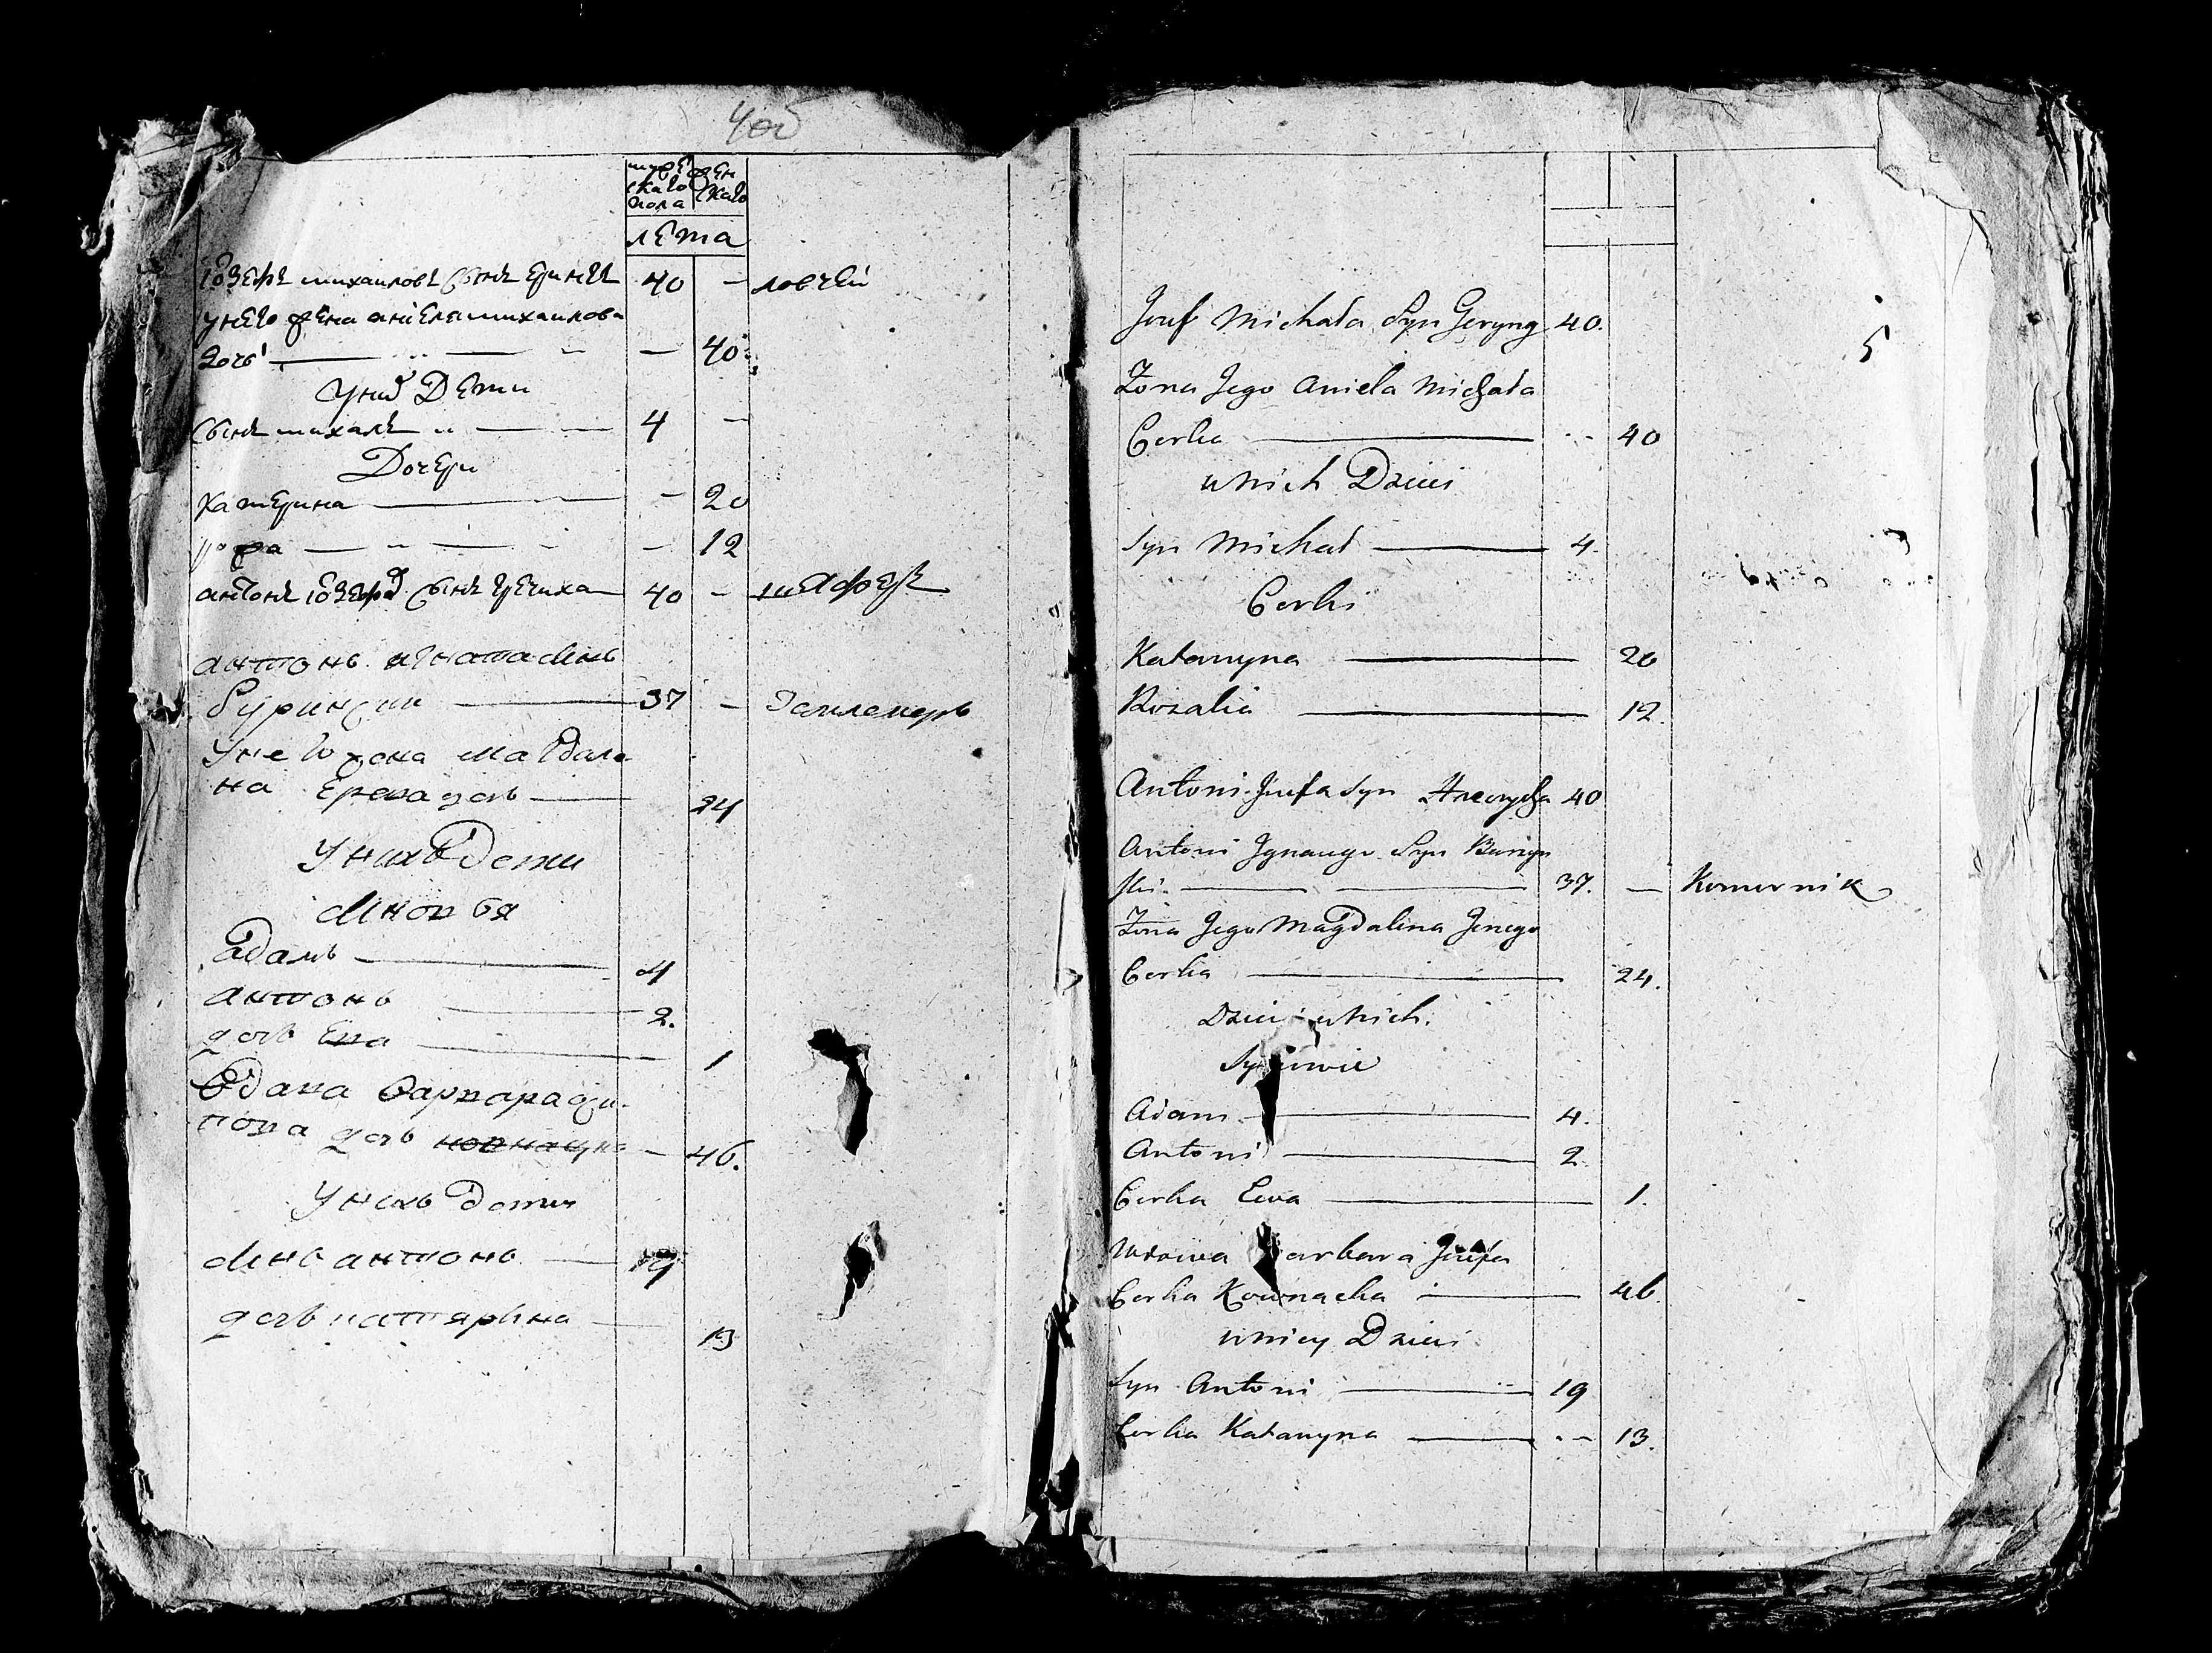 4об
мужескаго пола
женскаго
лета
Іозефъ михаиловъ сынъ Герингъ 40 — ловчей
у него жена аніела михаилова
дочь — 40
у них Дети
сынъ михалъ — 4 —
Дочери
Катерина — 20
— 12
антонъ Іозефа сынъ гречиха 40 —
антонъ игната синъ
буринский — 37 — Землемеръ
у него жона магдале
на дочь — 24
у нихъ дети
синовя
адамъ — 4
антонъ 2.
дочь Ева — 1
вдова варвара
дочь — 46.
у нихъ дети
синъ антонъ — 19
дочь катярина — 13
5
Jozef Michała Syn Geryng 40.
Zona Jego Aniela Michała
Corka — 40
u Nich Dzieci
Syn Michał — 4.
Corki
Katarzyna — 20
Rozalia — 12.
Antoni Jozefa Syn Hreczycha 40
Antoni Jgnacego Syn Buryn
ski. — 37. — Komornik
Zona Jego Magdalena Jerzego
Corka — 24.
Dzieci u Nich.
Synowie
Adam — 4.
Antoni — 2.
Corka Ewa — 1.
Wdowa Barbara Jozefa
Corka Kownacka — 46.
u Niey Dzieci
Syn Antoni — 19
Corka Katarzyna — 13.